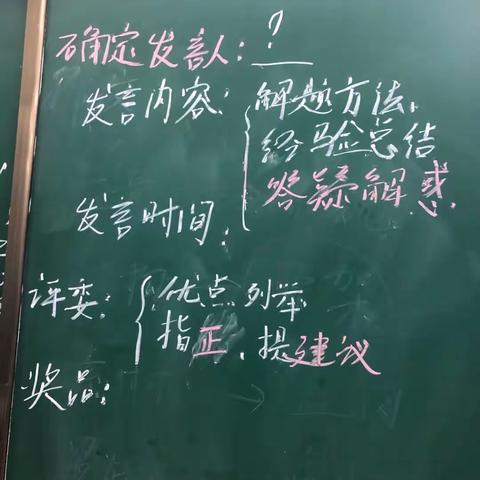 确定发言人：?
发言内容：解题方法，
经验总结
答疑解惑.
发言时间：
评委：优点列举
指正、提建议
奖品：